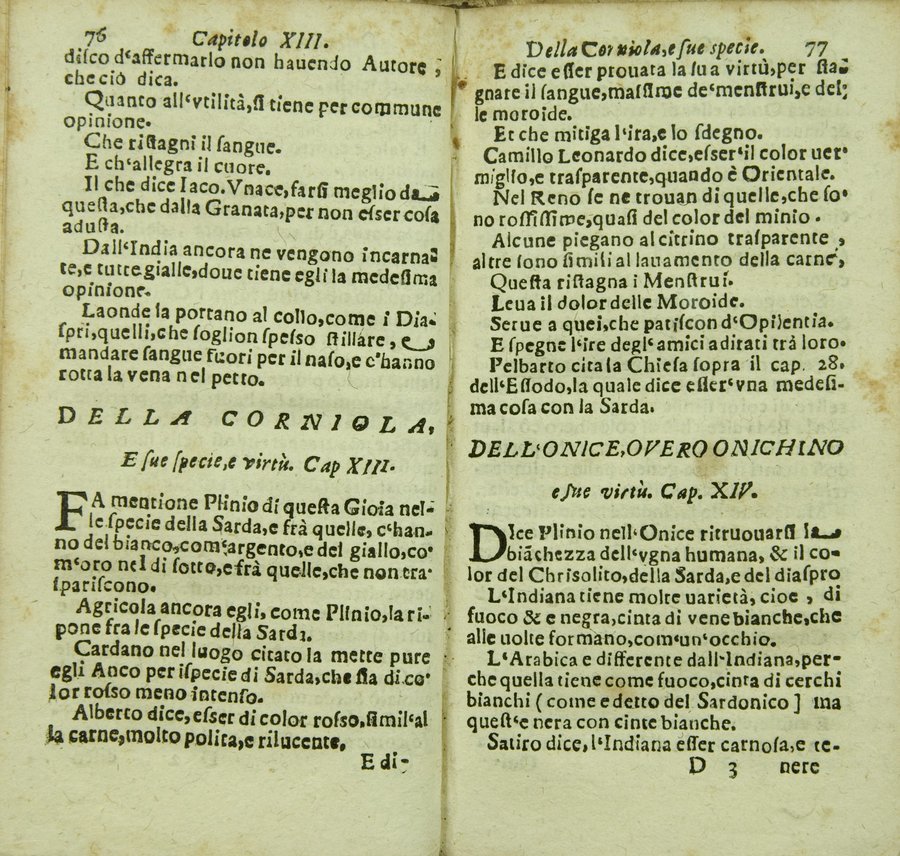 76 Capitolo XIII.
diſco d'affermarlo non hauendo Autore,
che ciò dica.
Quanto all'vtilità, ſi tiene per commune
opinione.
Che riſtagni il ſangue.
E ch'allegra il cuore.
Il che dice Iaco. Vnace, farſi meglio da
queſta, che dalla Granata, per non eſſer coſa
aduſta.
Dall'India ancora ne vengono incarna-
te, e tutte gialle, doue tiene egli la medeſima
opinione.
Laonde la portano al collo, come i Dia-
ſpri, quelli, che ſoglion ſpeſſo ſtillare, e
mandare ſangue fuori per il naſo, e c'hanno
rotta la vena nel petto.
DELLA CORNIOLA,
E ſue ſpecie, e virtù. Cap XIII.
FA mentione Plinio di queſta Gioia nel-
le ſpecie della Sarda, e frà quelle, c'han-
no del bianco, com'argento, e del giallo, co-
m'oro nel di ſotto, e frà quelle, che non tra-
ſpariſcono.
Agricola ancora egli, come Plinio, la ri-
pone fra le ſpecie della Sarda.
Cardano nel luogo citato la mette pure
egli Anco per iſpecie di Sarda, che ſia di co-
lor roſſo meno intenſo.
Alberto dice, eſſer di color roſſo, ſimil'al
la carne, molto polita, e rilucente.
E di-
Della Corniola, e ſue specie. 77
E dice eſſer prouata la ſua virtù, per ſta-
gnare il ſangue, maſſime de'menſtrui, e del-
le moroide.
Et che mitiga l'ira, e lo ſdegno.
Camillo Leonardo dice, eſſer'il color uer-
miglio, e traſparente, quando è Orientale.
Nel Reno ſe ne trouan di quelle, che ſo-
no roſſiſſime, quaſi del color del minio.
Alcune piegano al citrino traſparente,
altre ſono ſimili al lauamento della carne,
Queſta riſtagna i Menſtrui.
Leua il dolor delle Moroide.
Serue a quei, che patiſcon d'Opilentia.
E ſpegne l'ire degl'amici adirati trà loro.
Pelbarto cita la Chieſa ſopra il cap. 28.
dell'Eſſodo, la quale dice eſſer'vna medeſi-
ma coſa con la Sarda.
DELL'ONICE, OVERO ONICHINO
e ſue virtù. Cap. XIV.
DIce Plinio nell'Onice ritruouarſi la
biāchezza dell'vgna humana, & il co-
lor del Chriſolito, della Sarda, e del diaſpro
L'Indiana tiene molte uarietà, cioe, di
fuoco & e negra, cinta di vene bianche, che
alle uolte formano, com'un'occhio.
L'Arabica e differente dall'Indiana, per-
che quella tiene come fuoco, cinta di cerchi
bianchi ( come e detto del Sardonico ] ma
queſt'e nera con cinte bianche.
Satiro dice, l'Indiana eſſer carnoſa, e te-
D 3 nere